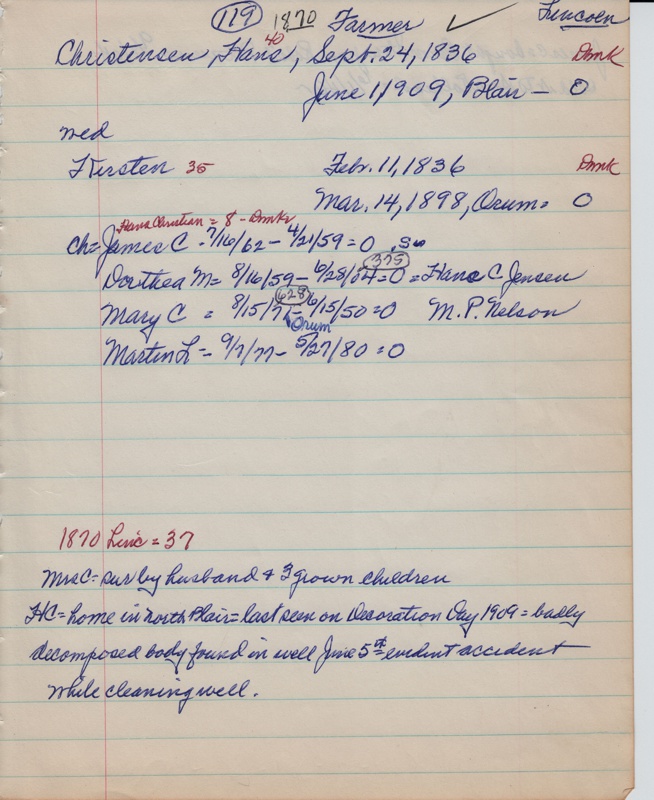 119 1870 Farmer ✓ Lincoln
Christensen, Hans 40, Sept. 24, 1836 Dmk
June 1, 1909, Blair - O
med
Kirsten 35 Feb. 11, 1836 Dmk
Mar. 14, 1898, Orum = O
Hans Christian = 8 - Dmk
Ch = James C - 7/16/62 - 4/21/59 = O, S
375
Dorthea M = 8/16/59 - 6/28/04 = O = Hans C Jensen
628
Mary C = 8/15/71 - 6/15/50 = O M. P. Nelson
Orum
Martin L - 9/7/77 - 5/27/80 = O
1870 Linc = 37
Mrs C = sur by husband & 3 grown children
HC = home in north Blair = last seen on Decoration Day 1909 = badly
decomposed body found in well June 5th = evident accident
while cleaning well.